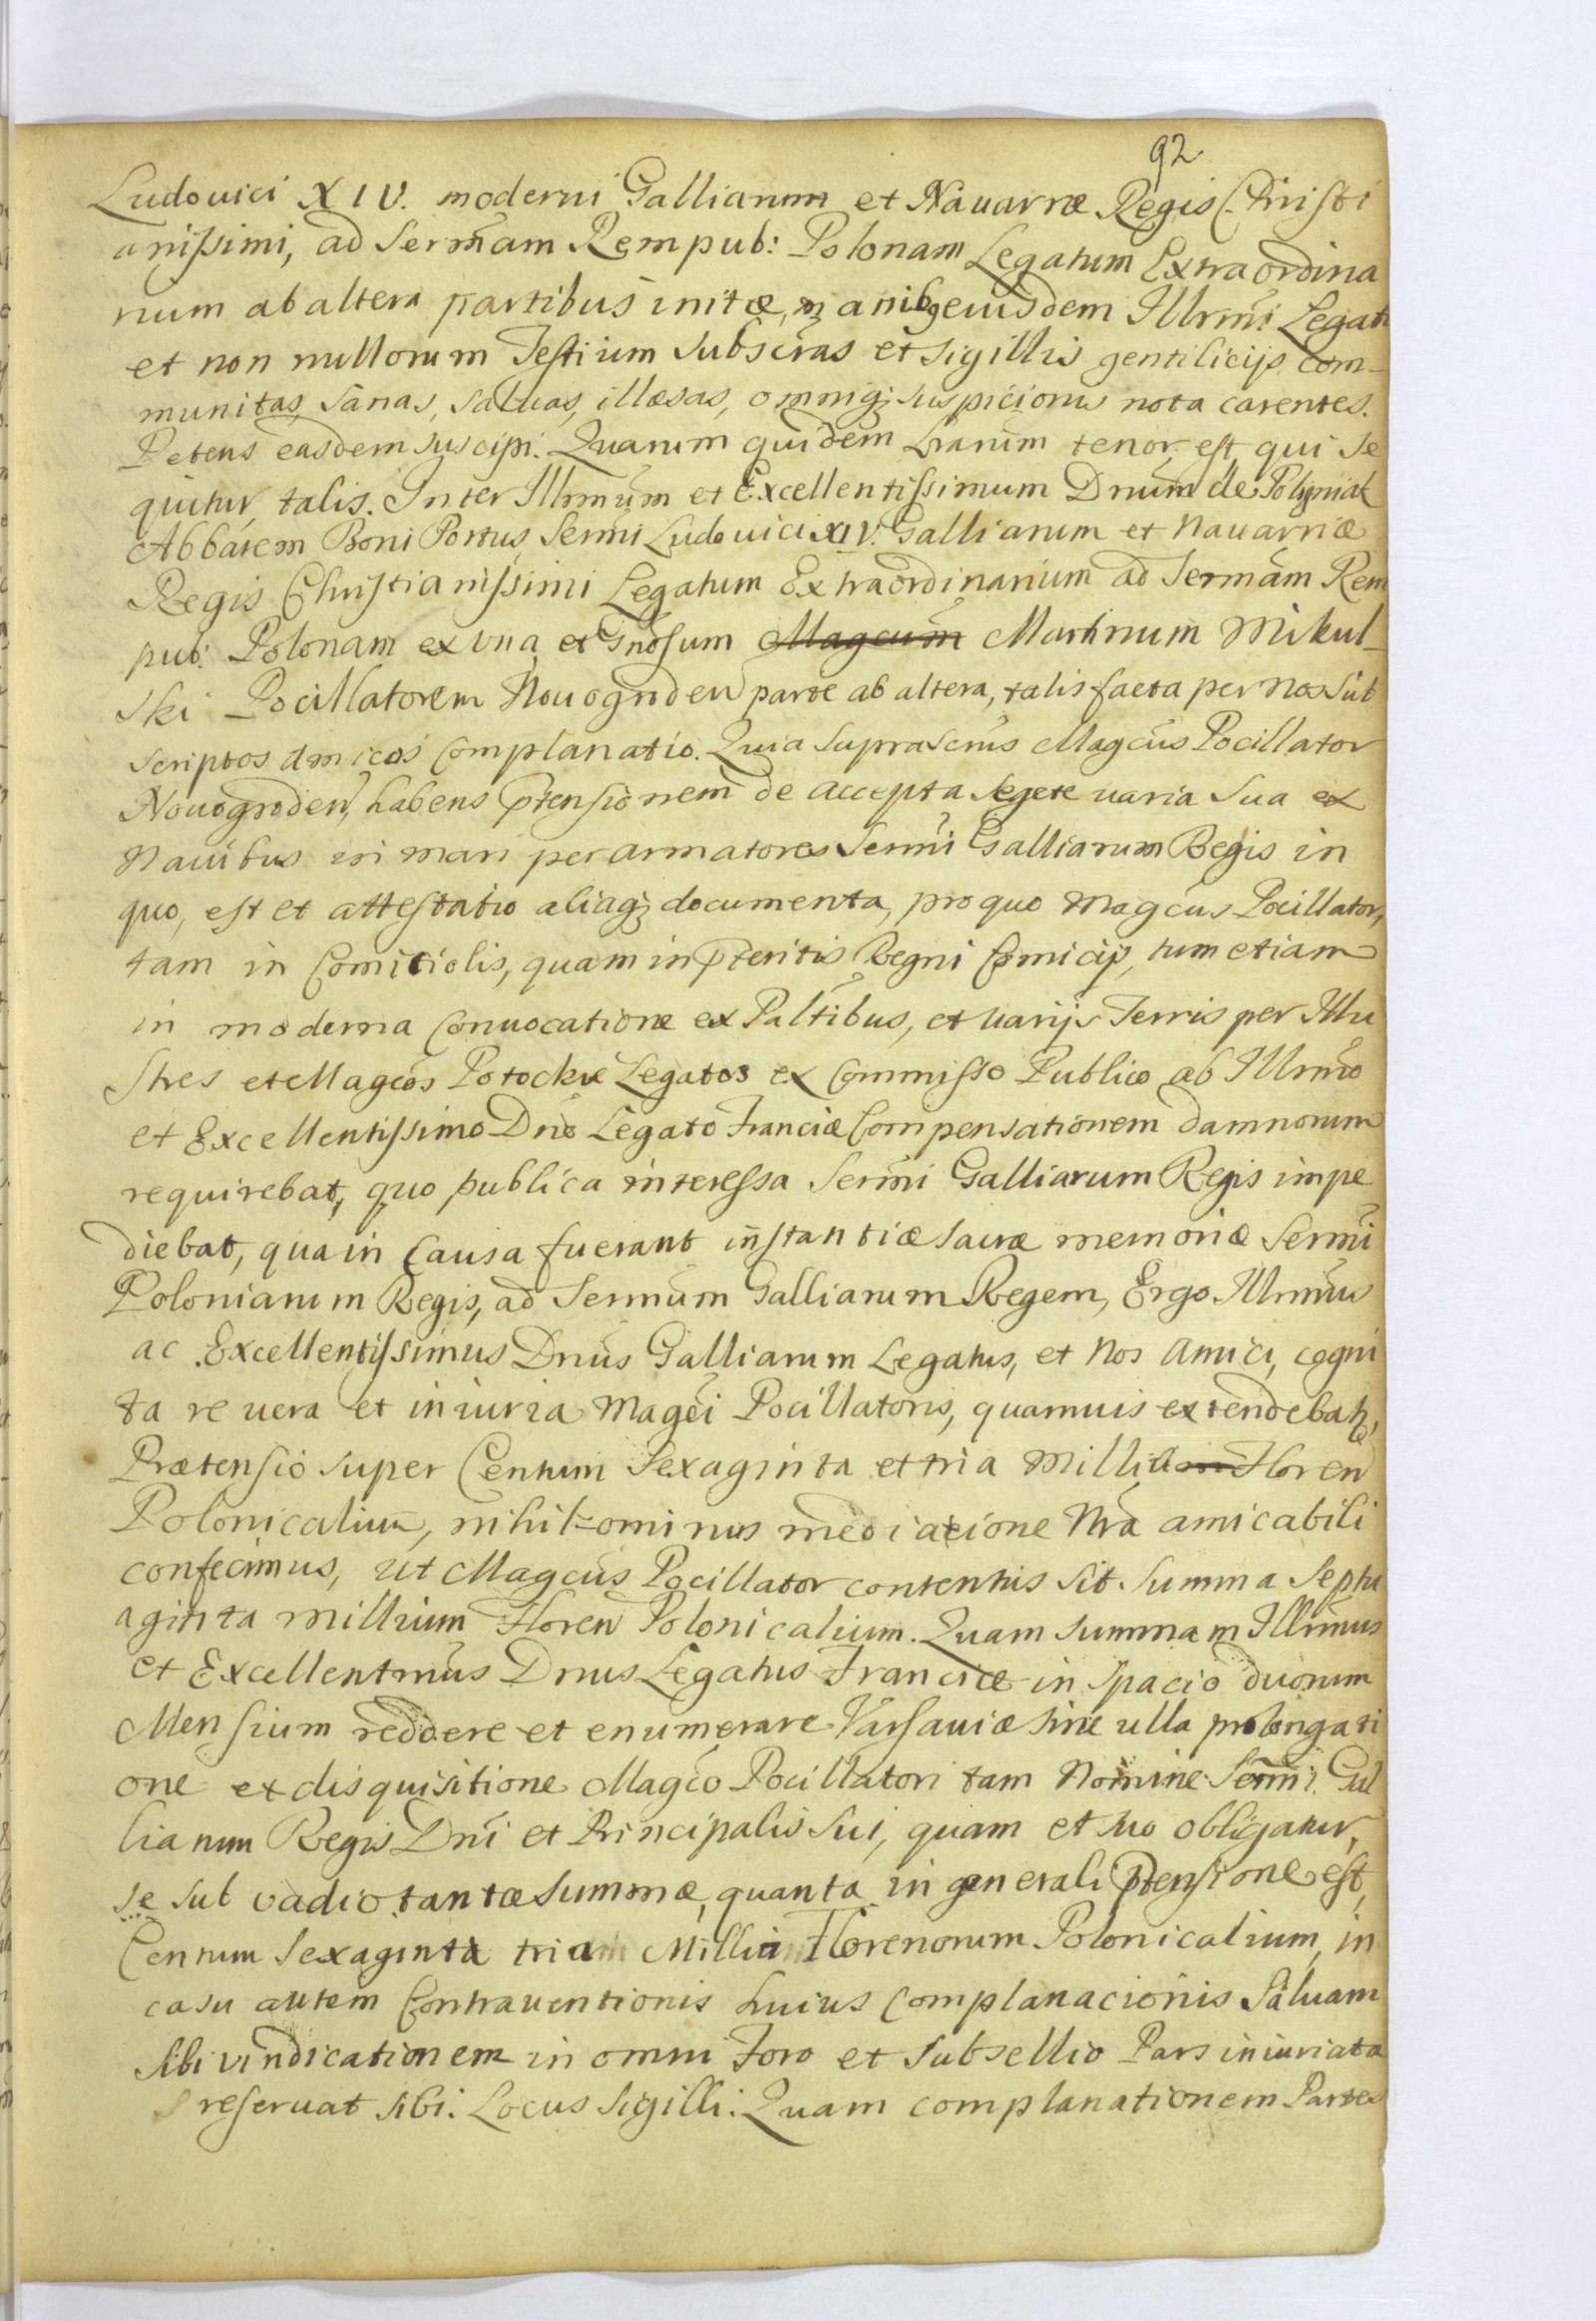 92
Ludouici XIV. moderni Galliarum et Nauarræ Regis Christi
anissimi, ad Sermãm Rempub: Polonam Legatum Extraordina
rium ab altera partibus initæ, manibq eiusdem Illrmi Legati
et non nullorum Testium Subscras et Sigillis gentilicijs com-
munitas, Sanas, Saluas, illæsas, omniq; Suspicionis nota carentes.
Petens easdem suscipi. Quarum quidem Lrarum tenor est, qui se
quitur, talis. Inter Illrmũm et Excellentissimum Dnũm de Polyniak
Abbatem Boni Portus, Sermi Ludouici XIV. Galliarum et Nauarriæ
Regis Christianissimi Legatum Extraordinarium ad Sermãm Rem
pub: Polonam ex una, et Gnosum Magcum Martinum Mikul-
ski Pocillatorem Nouogroden parte ab altera, talis facta per nos Sub
scriptos amicos Complanatio. Quia Suprascrus Magcus Pocillator
Nouogroden, habens ptensionem de accepta segete uaria Sua ex
Nauibus in mari per armatores Sermi Galliarum Regis in
quo, est et attestatio aliaq; documenta, pro quo Magcus Pocillator,
tam in Comitiolis, quam in pteritis Regni Comicijs, tum etiam
in moderna Conuocatione ex Paltibus, et uarijs Terris per Illu
stres et Magcos Potockie Legatos ex Commisso Publico ab Illrmo
et Excellentissimo Dno Legato Franciæ Compensationem damnorum
requirebat, quo publica interessa Sermi Galliarum Regis impe
diebat, qua in Causa fuerant instantiæ sacræ memoriæ Sermi
Poloniarum Regis, ad Sermum Galliarum Regem, Ergo Illrmus
ac Excellentissimus Dnus Galliarum Legatus, et Nos Amici, cogni
ta re uera et iniuria Magci Pocillatoris, quamuis extendebatr,
Prætensio super Centum Sexaginta et tria Millia Floren
Polonicalium, nihil-ominus mediatione Nra amicabili
confecimus, ut Magcus Pocillator contentus sit Summa Septu
aginta millium Floren Polonicalium. Quam summam Illrmus
et Excellentmus Dnus Legatus Franciæ in spacio duorum
Mensium reddere et enumerare Varsauiæ sine ulla prolongati
one et disquisitione Magco Pocillatori tam Nomine Sermi Gal
liarum Regis Dni et Principalis Sui, quam et suo obligatur,
se sub vadio tantæ Summæ, quanta in generali ptensione est,
Centum Sexaginta tria Millia Florenorum Polonicalium, in
casu autem Contrauentionis huius Complanacionis Saluam
sibi vindicationem in omni Foro et Subsellio Pars iniuriata
reseruat sibi. Locus Sigilli. Quam complanationem Partes